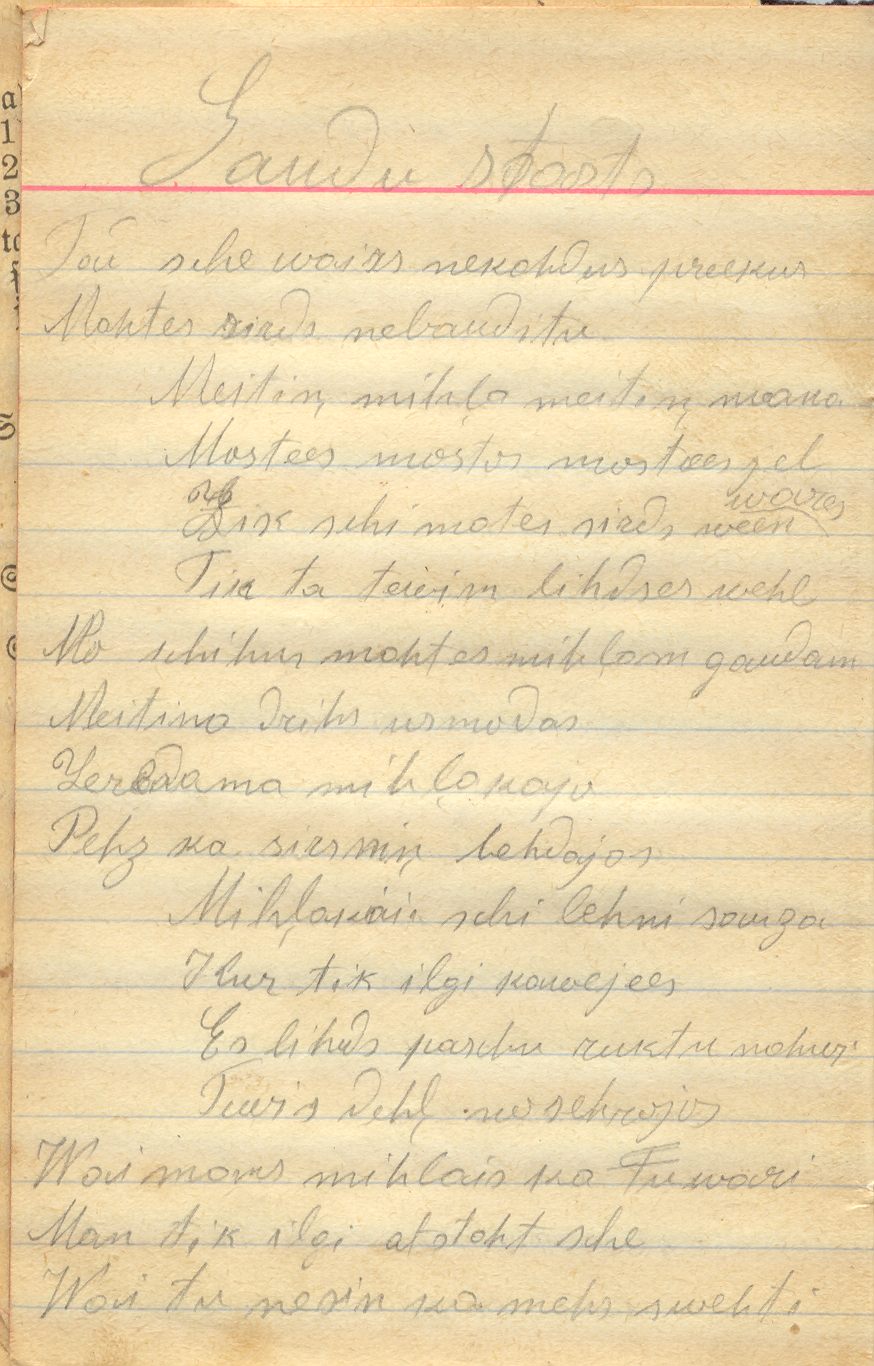 Gaudu stasts
Tai sche wairs nekahdus preekus
Mahtes sirds nebauditu
Meitiņ, mihļa meitiņ, mana
Mostees mostos mostees jel
Tik schi mates sirds ween
wares
Tik ta tewim lihdses wehl
No schihm mahtes mihļam gaudam
Meitina drihs usmodas
Zeredama mihļakajo
Pehz ka sirsniņ behdajos
Mihļakais schi lehni sauza
Kur tik ilgi kawejees
Es lihds paschu ruktu
Tewis dehļ nosehrojos
Wai mans mihlais ka Tu wari
Man tik ilgi atstaht sche
Wai tu nesin ka mehs swehti